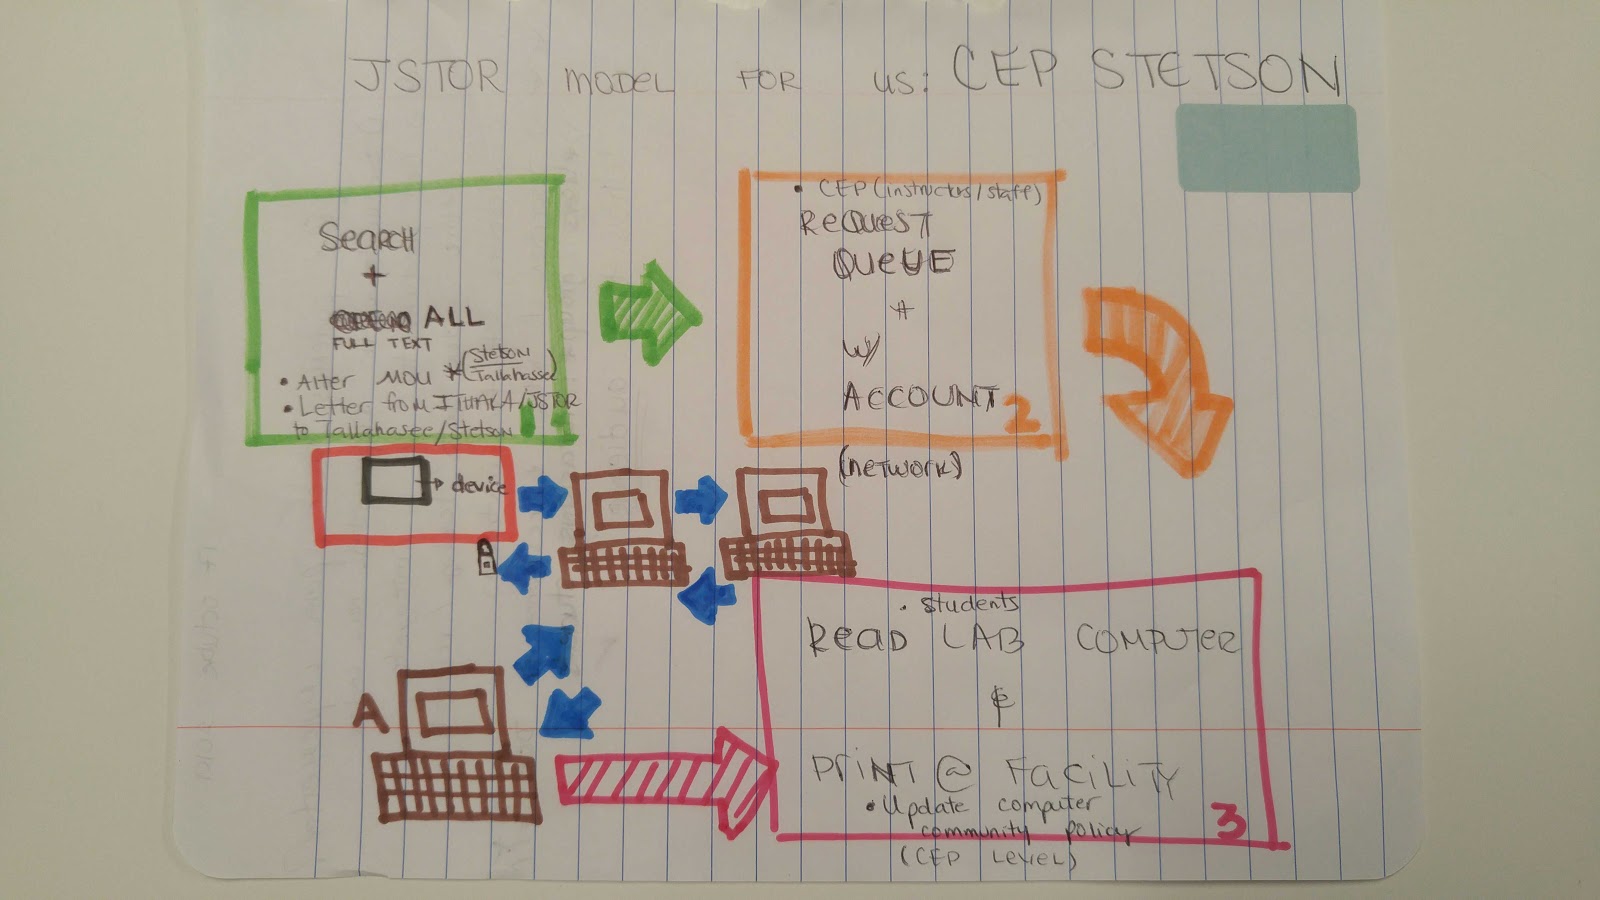 JSTOR MODEL FOR US: CEP STETSON
Search
+
ALL
FULL TEXT
• Alter MOU *(Stetson/Tallahassee)
• Letter from ITHAKA/JSTOR
to Tallahasee/Stetson
1
• CEP (instructors/staff)
Request
Queue
#
w/
ACCOUNT
2
(network)
device
A
• Students
Read LAB COMPUTER
&
Print @ Facility
• Update computer
community policy
(CEP Level)
3